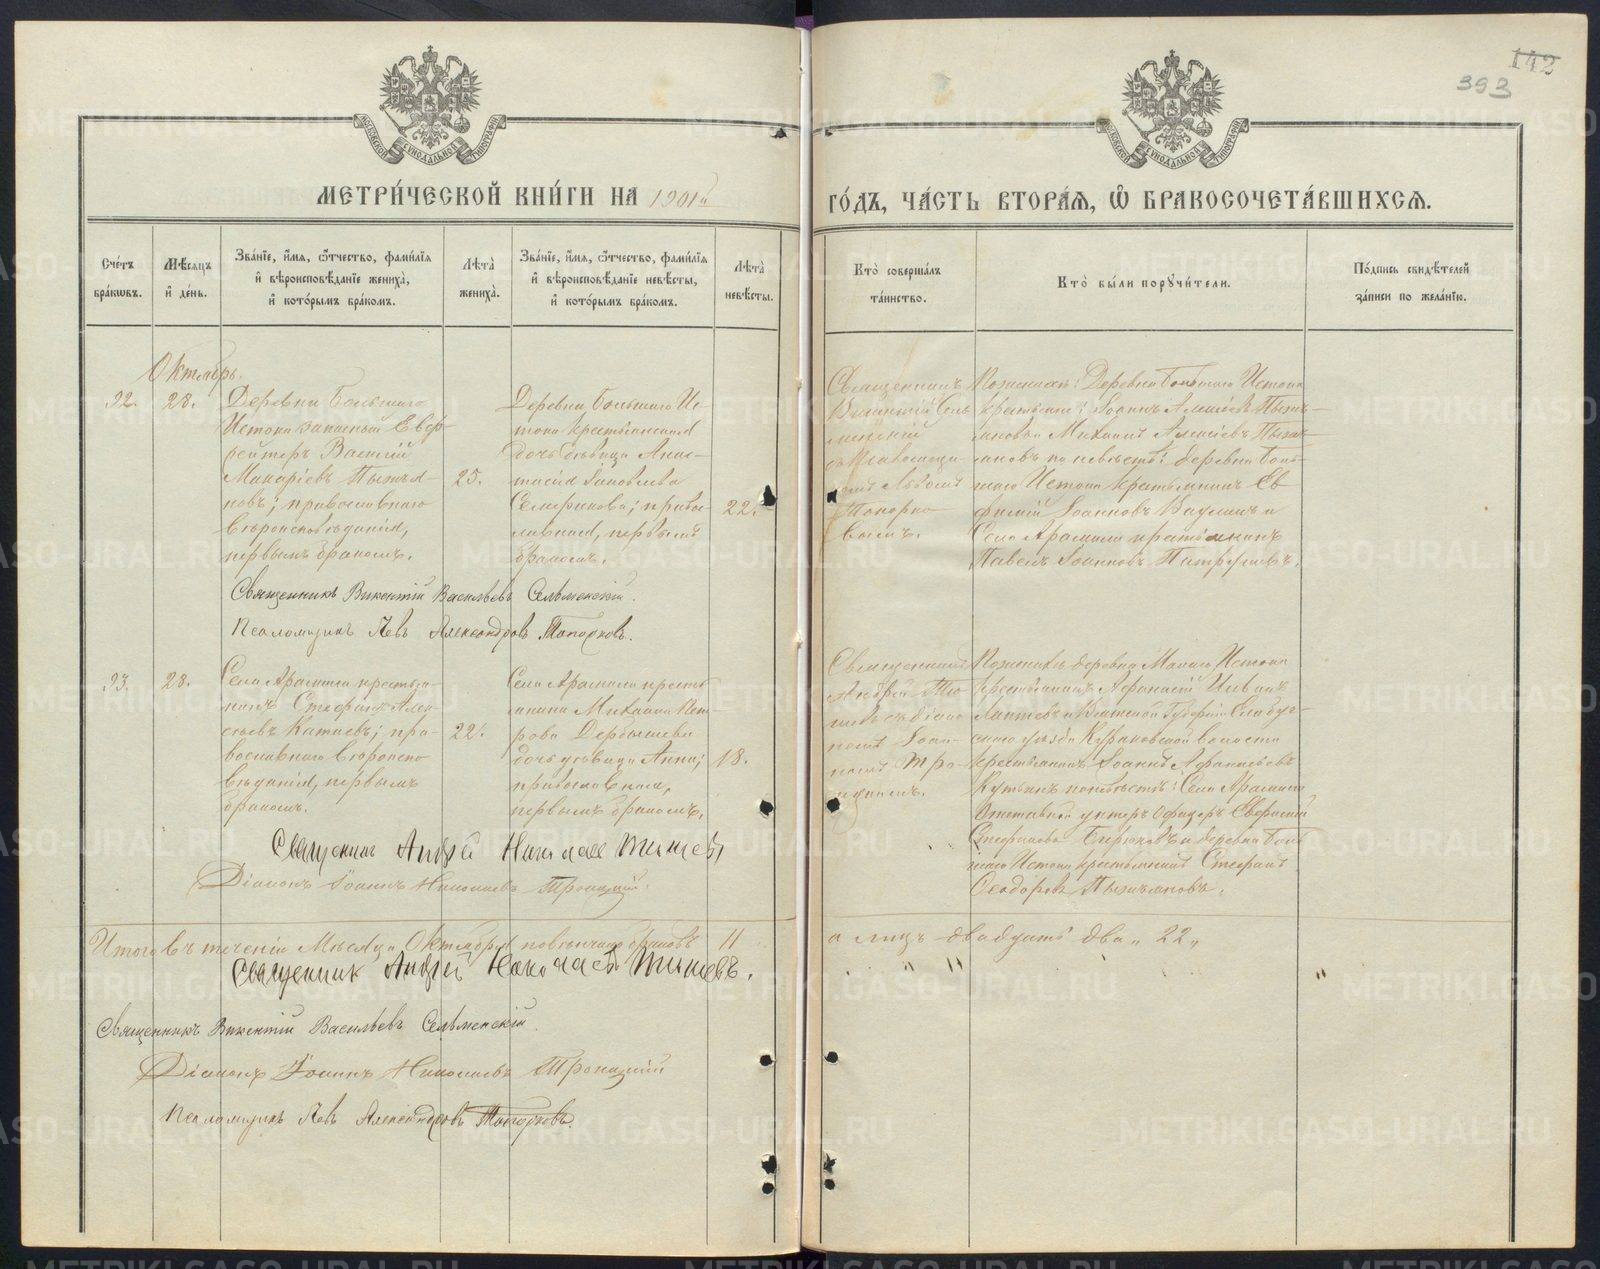 142
393
МОСКОВСКОЙ СѴНОДАЛЬНОЙ ТИПОГРАФІИ
МОСКОВСКОЙ СѴНОДАЛЬНОЙ ТИПОГРАФІИ
МЕТРИ́ЧЕСКОЙ КНИ́ГИ НА 1901й
ГО́ДЪ, ЧА́СТЬ ВТОРА́Ѧ, Ѽ БРАКОСОЧЕТА́ВШИХСѦ.
Сче́тъ
бра́кѡвъ.
Мѣ́сяцъ
и҆ де́нь.
Зва́нїе, и҆́мя, ѻ҆́тчество, фами́лїя
и҆ вѣроисповѣ́данїе жениха̀,
и҆ кото́рымъ бра́комъ.
Лѣта̀
жениха̀.
Зва́нїе, и҆́мя, ѻ҆́тчество, фами́лїя
и҆ вѣроисповѣ́данїе невѣ́сты,
и҆ кото́рымъ бра́комъ.
Лѣта̀
невѣ́сты.
Кто̀ соверша́лъ
та́инство.
Кто̀ бы́ли порꙋчи́тели.
По́дпись свидѣ́телей
за́писи по жела́нїю.
Октябрь.
32.
28.
Деревни Большаго
Истока запасный Ефр-
рейтеръ Василій
Макаріевъ Пыжья
новъ; православнаго
вѣроисповѣданія,
первымъ бракомъ.
25.
Деревни Большаго Ис-
тока крестьянская
дочь дѣвица Анас-
тасія Іаковлева
православная, первымъ
бракомъ.
22.
Священникъ
Викентій Сель
менскій
съ псаломщи-
комъ Львомъ
Топорко
вымъ.
По женихѣ: Деревни Большаго Истока
крестьяне: Іоаннъ Алексіевъ Пыжья-
новъ и Михаилъ Алексіевъ Пыжья
новъ по невѣстѣ: деревни Боль-
шаго Истока крестьянинъ Ев
фимій Іоанновъ Ваулинъ и
Села Арамили крестьянинъ
Павелъ Іоанновъ Патрушевъ.
Священникъ Викентій Васильевъ Сельменскій.
Псаломщикъ Левъ Александровъ Топорковъ.
33.
28.
Села Арамили крестья-
нинъ Стефанъ Алек-
сѣевъ Катаевъ; пра-
вославнаго вѣроиспо
вѣданія, первымъ
бракомъ.
22.
Села Арамили кресть
янина Михаила Пет-
рова Дербышева
дочь дѣвица Анна;
православная,
первымъ бракомъ.
18.
Священникъ
Андрей Ти-
шевъ съ діако
номъ Іоан-
номъ Тро-
ицкимъ.
По женихѣ: деревни Малаго Истока
крестьянинъ Аѳанасій Ивановъ
Лаптевъ и Вятской Губерніи Слобод-
скаго уѣзда Кураковской волости
крестьянинъ Іоаннъ Аѳанасьевъ
по невѣстѣ: Села Арамили
Отставной унтеръ Офицеръ Евграфій
Стефановъ Бирюковъ и деревни Боль
шаго Истока крестьянинъ Стефанъ
Ѳеодоровъ Пыжьяновъ.
Священникъ Андрей Николаевъ Тишевъ
Діаконъ Іоаннъ Николаевъ Троицкій.
Итого въ теченіи Мѣсяца Октября повѣнчано браковъ 11
а лицъ двадцать два „ 22 „
Священникъ Андрей Николаевъ Тишевъ.
Священникъ Викентій Васильевъ Сельменскій.
Діаконъ Іоаннъ Николаевъ Троицкій
Псаломщикъ Левъ Александровъ Топорковъ.
METRIKI.GASO-URAL.RU